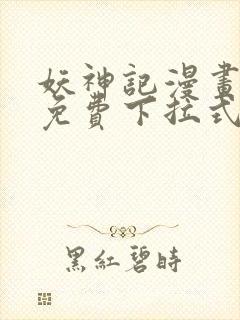 妖神記漫畫
免費下拉式
黑紅碧時